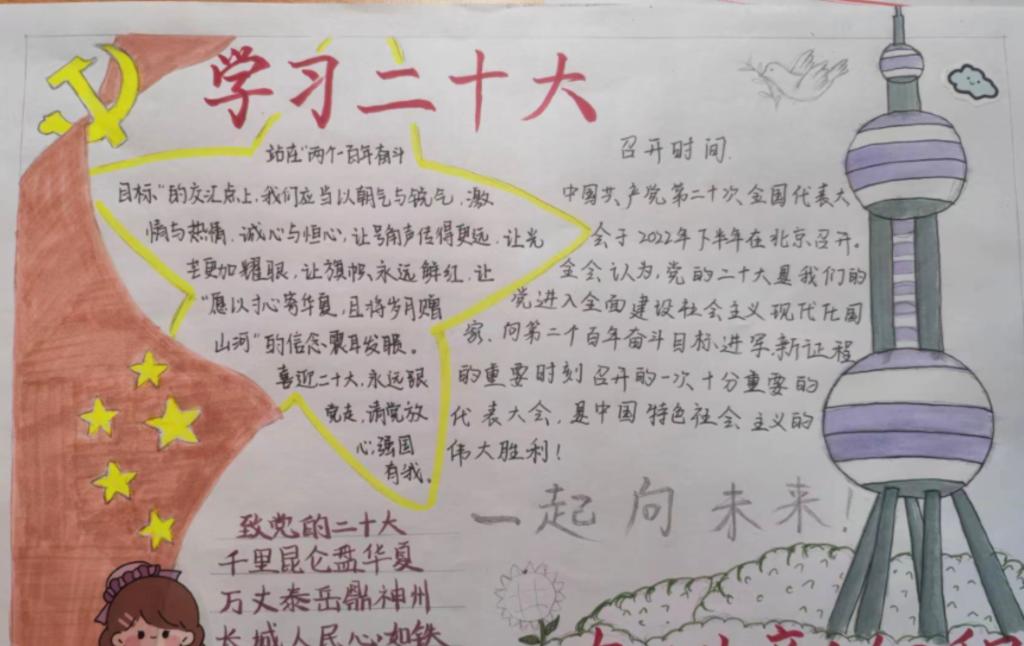 学习二十大
站在"两个百年奋斗
目标"的交汇点上,我们应当以朝气与锐气,激
情与热情,诚心与恒心,让号角声传得更远,让光
芒更加耀眼,让旗帜永远鲜红,让
"愿以寸心寄华夏,且将岁月赠
山河"的信念震耳发聩。
喜迎二十大,永远跟
党走,请党放
心,强国
有我。
召开时间.
中国共产党第二十次全国代表大
会于2022年下半年在北京召开。
全会认为,党的二十大是我们的
党进入全面建设社会主义现代化国
家、向第二个百年奋斗目标进军新征程
的重要时刻召开的一次十分重要的
代表大会,是中国特色社会主义的
伟大胜利!
一起向未来!
致党的二十大
千里昆仑盘华夏
万丈泰岳鼎神州
长城人民心如铁